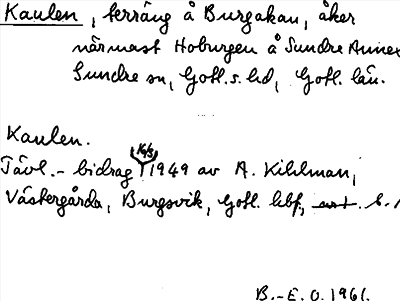 Kaulen, terräng å Burgakau, åker
närmast Hoburgen å Sundre Annex
Sundre sn, Gotl. s. hd, Gotl. län.
Kaulen.
Tävl.- bidrag 16/3 1949 av A. Kihlman,
Västergårda, Burgsvik, Gotl. lbf,
B.-E. O. 1961.